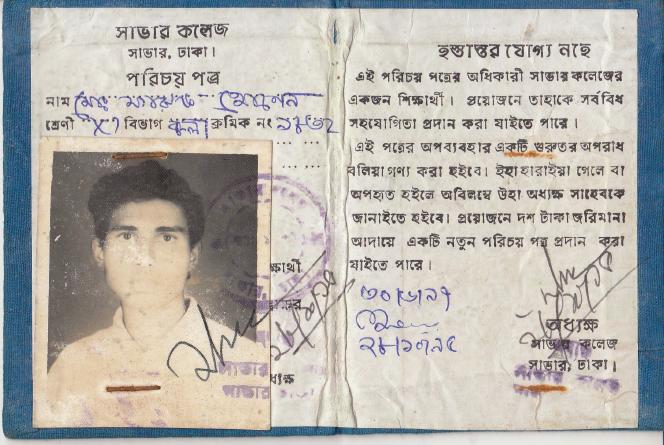 সাভার কলেজ
সাভার, ঢাকা।
পরিচয় পত্র
নাম মোঃ হোসেন
শ্রেণী বিভাগ কলা ক্রমিক নং
ক্ষার্থী
ধ্যক্ষ
হস্তান্তর যোগ্য নহে
এই পরিচয় পত্রের অধিকারী সাভার কলেজের
একজন শিক্ষার্থী। প্রয়োজনে তাহাকে সর্ববিধ
সহযোগিতা প্রদান করা যাইতে পারে।
এই পত্রের অপব্যবহার একটি গুরুতর অপরাধ
বলিয়া গণ্য করা হইবে। ইহা হারাইয়া গেলে বা
অপহৃত হইলে অবিলম্বে উহা অধ্যক্ষ সাহেবকে
জানাইতে হইবে। প্রয়োজনে দশ টাকা জরিমানা
আদায়ে একটি নতুন পরিচয় পত্র প্রদান করা
যাইতে পারে।
অধ্যক্ষ
সাভার কলেজ
সাভার, ঢাকা।